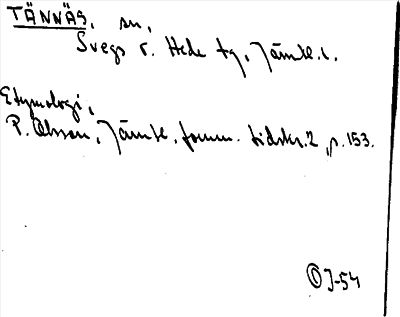 TÄNNÄS, sn,
Svegs o. Hede tg, Jämtl. l.
Etymologi,
P. Olsson, Jämtl. fornm. tidskr. 2, p. 153.
J-54